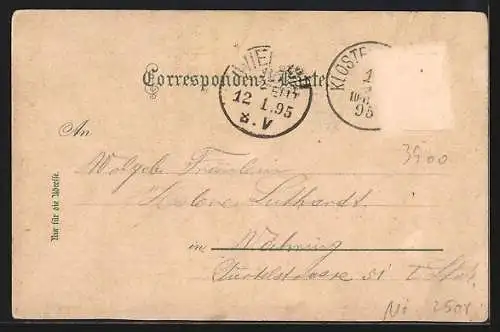 Correspondenz-Karte
WIEN
12 1. 95
8. V
KLOSTE
1
95
3900
An
Wolgeb. Fräulein
Helene Luthardt
in Währing
51 I. Stock
Nur für die Adresse.
Ni 2508